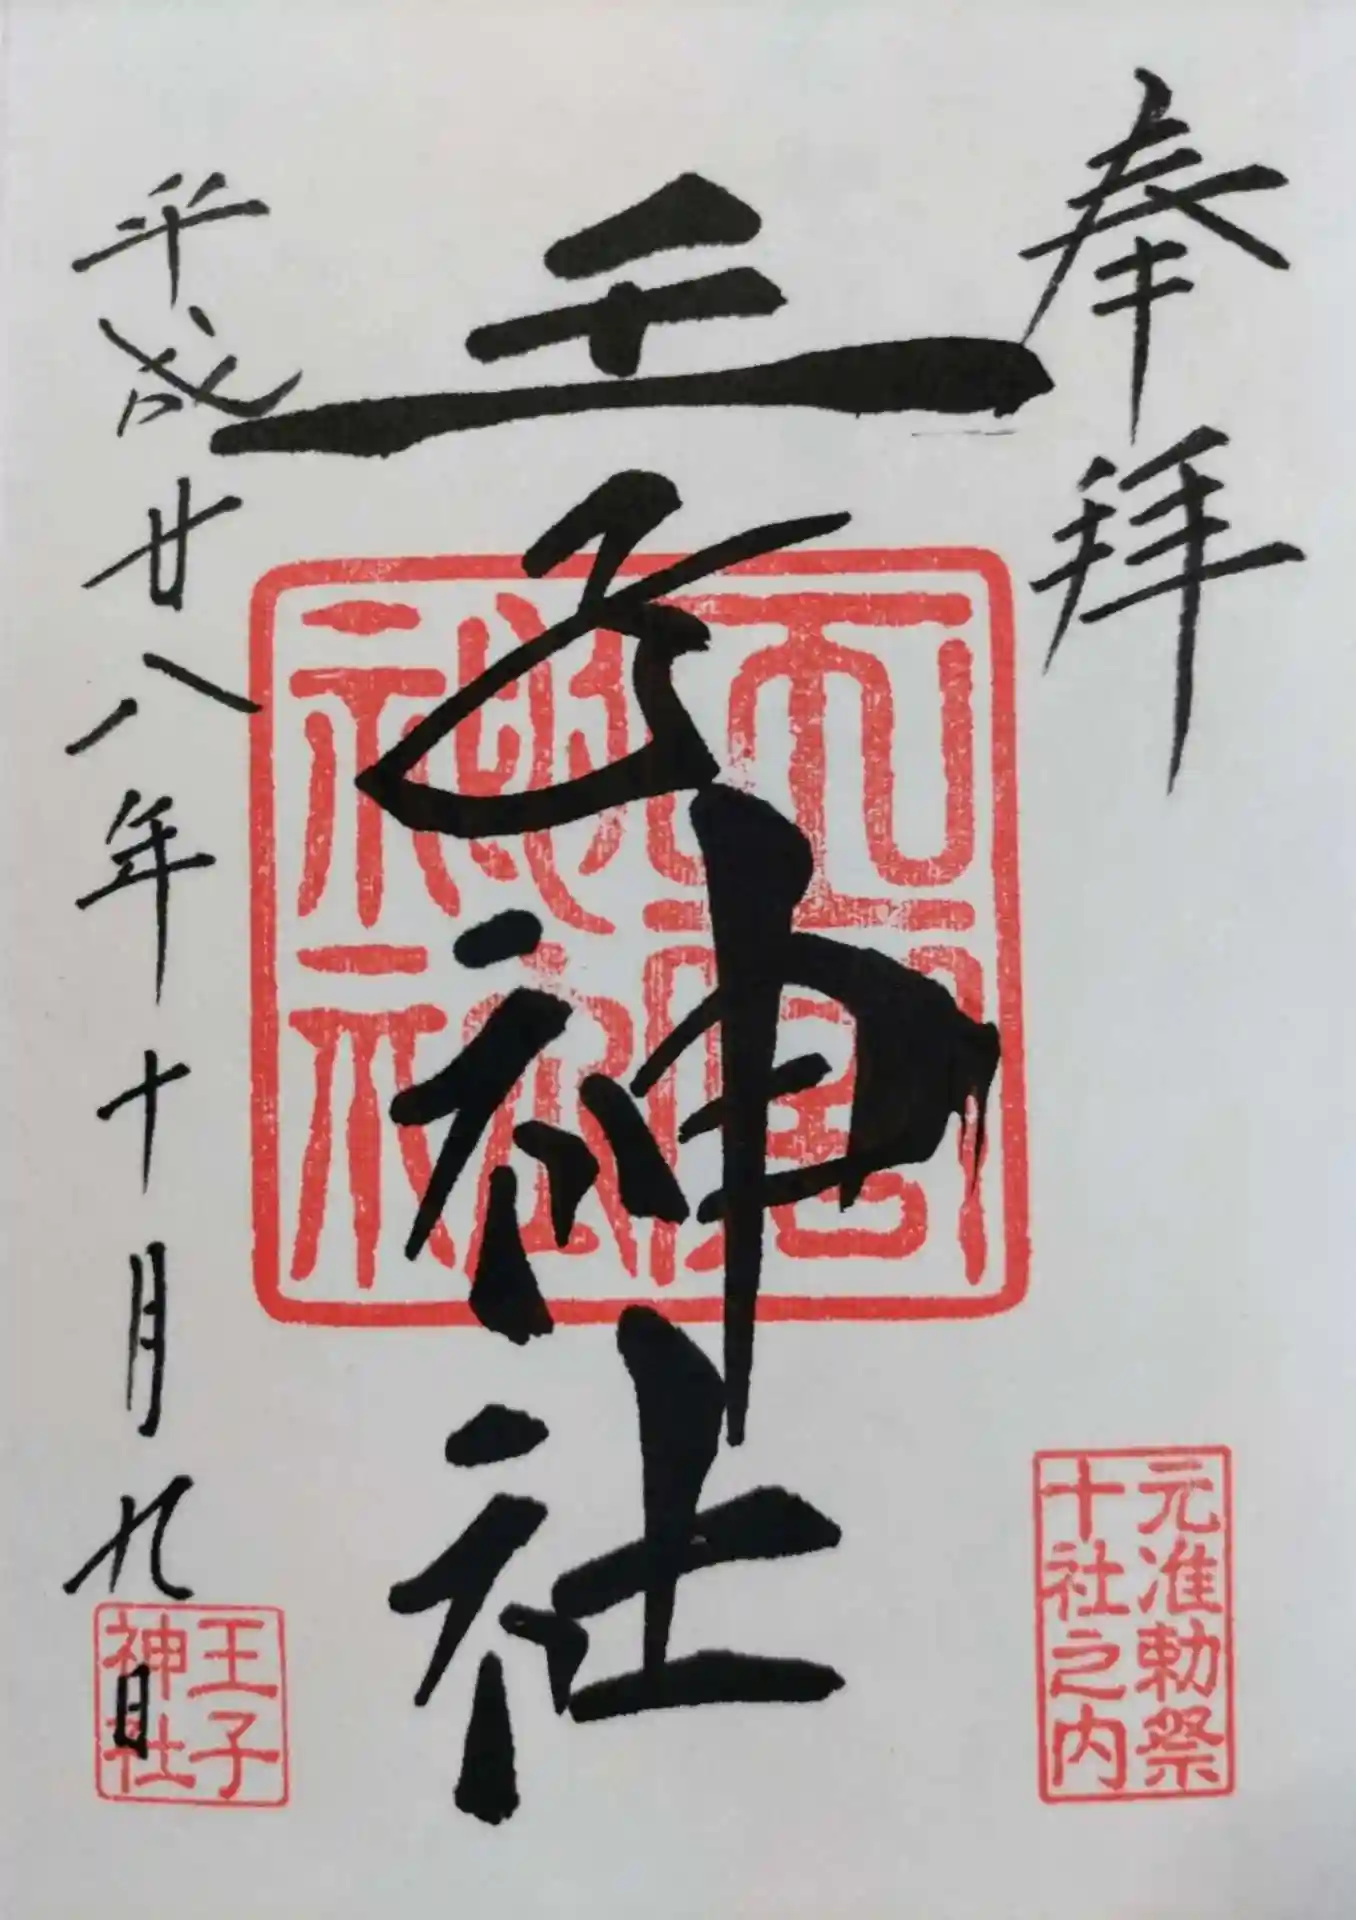 奉拝
王子神社
平成廿八年十月九日
元准勅祭
十社之内
王子
神社